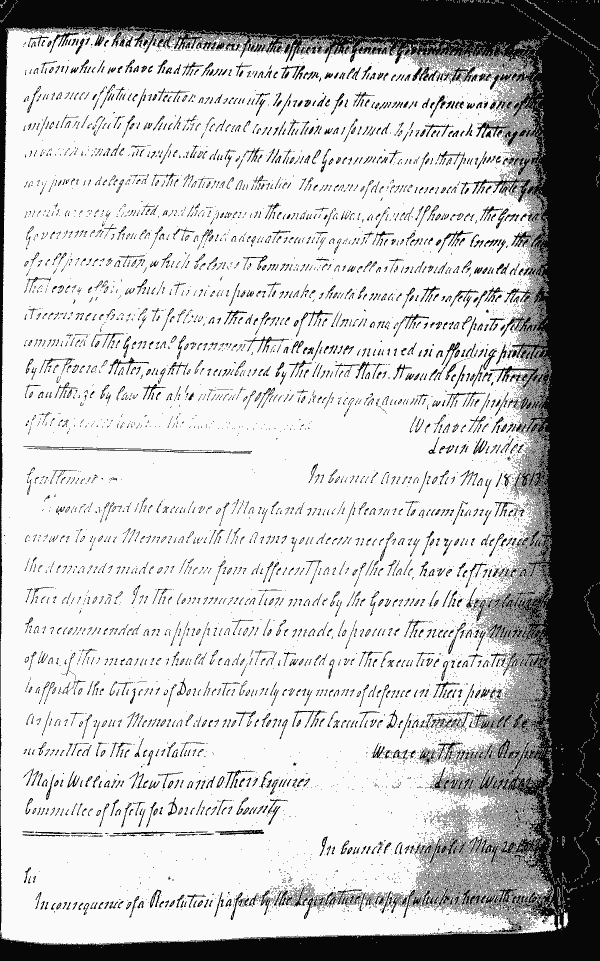 state of things. We had hoped that answers from the officers of the General Government to the
which we have had the honor to make to them, would have enabled us to have given
assurances of future protection and security. To provide for the common defence was one of the
important objects for which the federal constitution was formed. To protect each State against
invasion is made the imperative duty of the National Government and for that purpose every
power is delegated to the National Authorities the means of defence reserved to the State
are very limited, and their powers in the conduct of a War, defined. If however, the General
Government should fail to afford adequate security against the violence of the Enemy, the
of self preservation, which belongs to Communities as well as to individuals, would
that every effort, which it is in our power to make, should be made for the safety of the State
it seems necessarily to follow, as the defence of the Union and of the several parts of it
committed to the General Government, that all expenses incurred in affording protection
by the several States, ought to be reimbursed by the United States. It would be proper, therefore
to authorize by law the appointment of officers to keep regular accounts, with the proper
of the expenses We have the honor to be
Levin Winder
In Council Annapolis May 18 1813
Gentlemen
It would afford the Executive of Maryland much pleasure to accompany their
answer to your Memorial with the Arms you deem necessary for your defence but
the demands made on them from different parts of the State, have left none at
their disposal. In the communication made by the Governor to the Legislature
has recommended an appropriation to be made, to procure the necessary Munitions
of War, if this measure should be adopted it would give the Executive great satisfaction
to afford to the Citizens of Dorchester County every means of defence in their power
As part of your Memorial does not belong to the Executive Department it will be
submitted to the Legislature. We are with much Respect
Major William Newton and Others Esquires Levin Winder
Committee of Safety for Dorchester County
In Council Annapolis May 20
Sir
In consequence of a Resolution passed by the Legislature (a copy of which is herewith